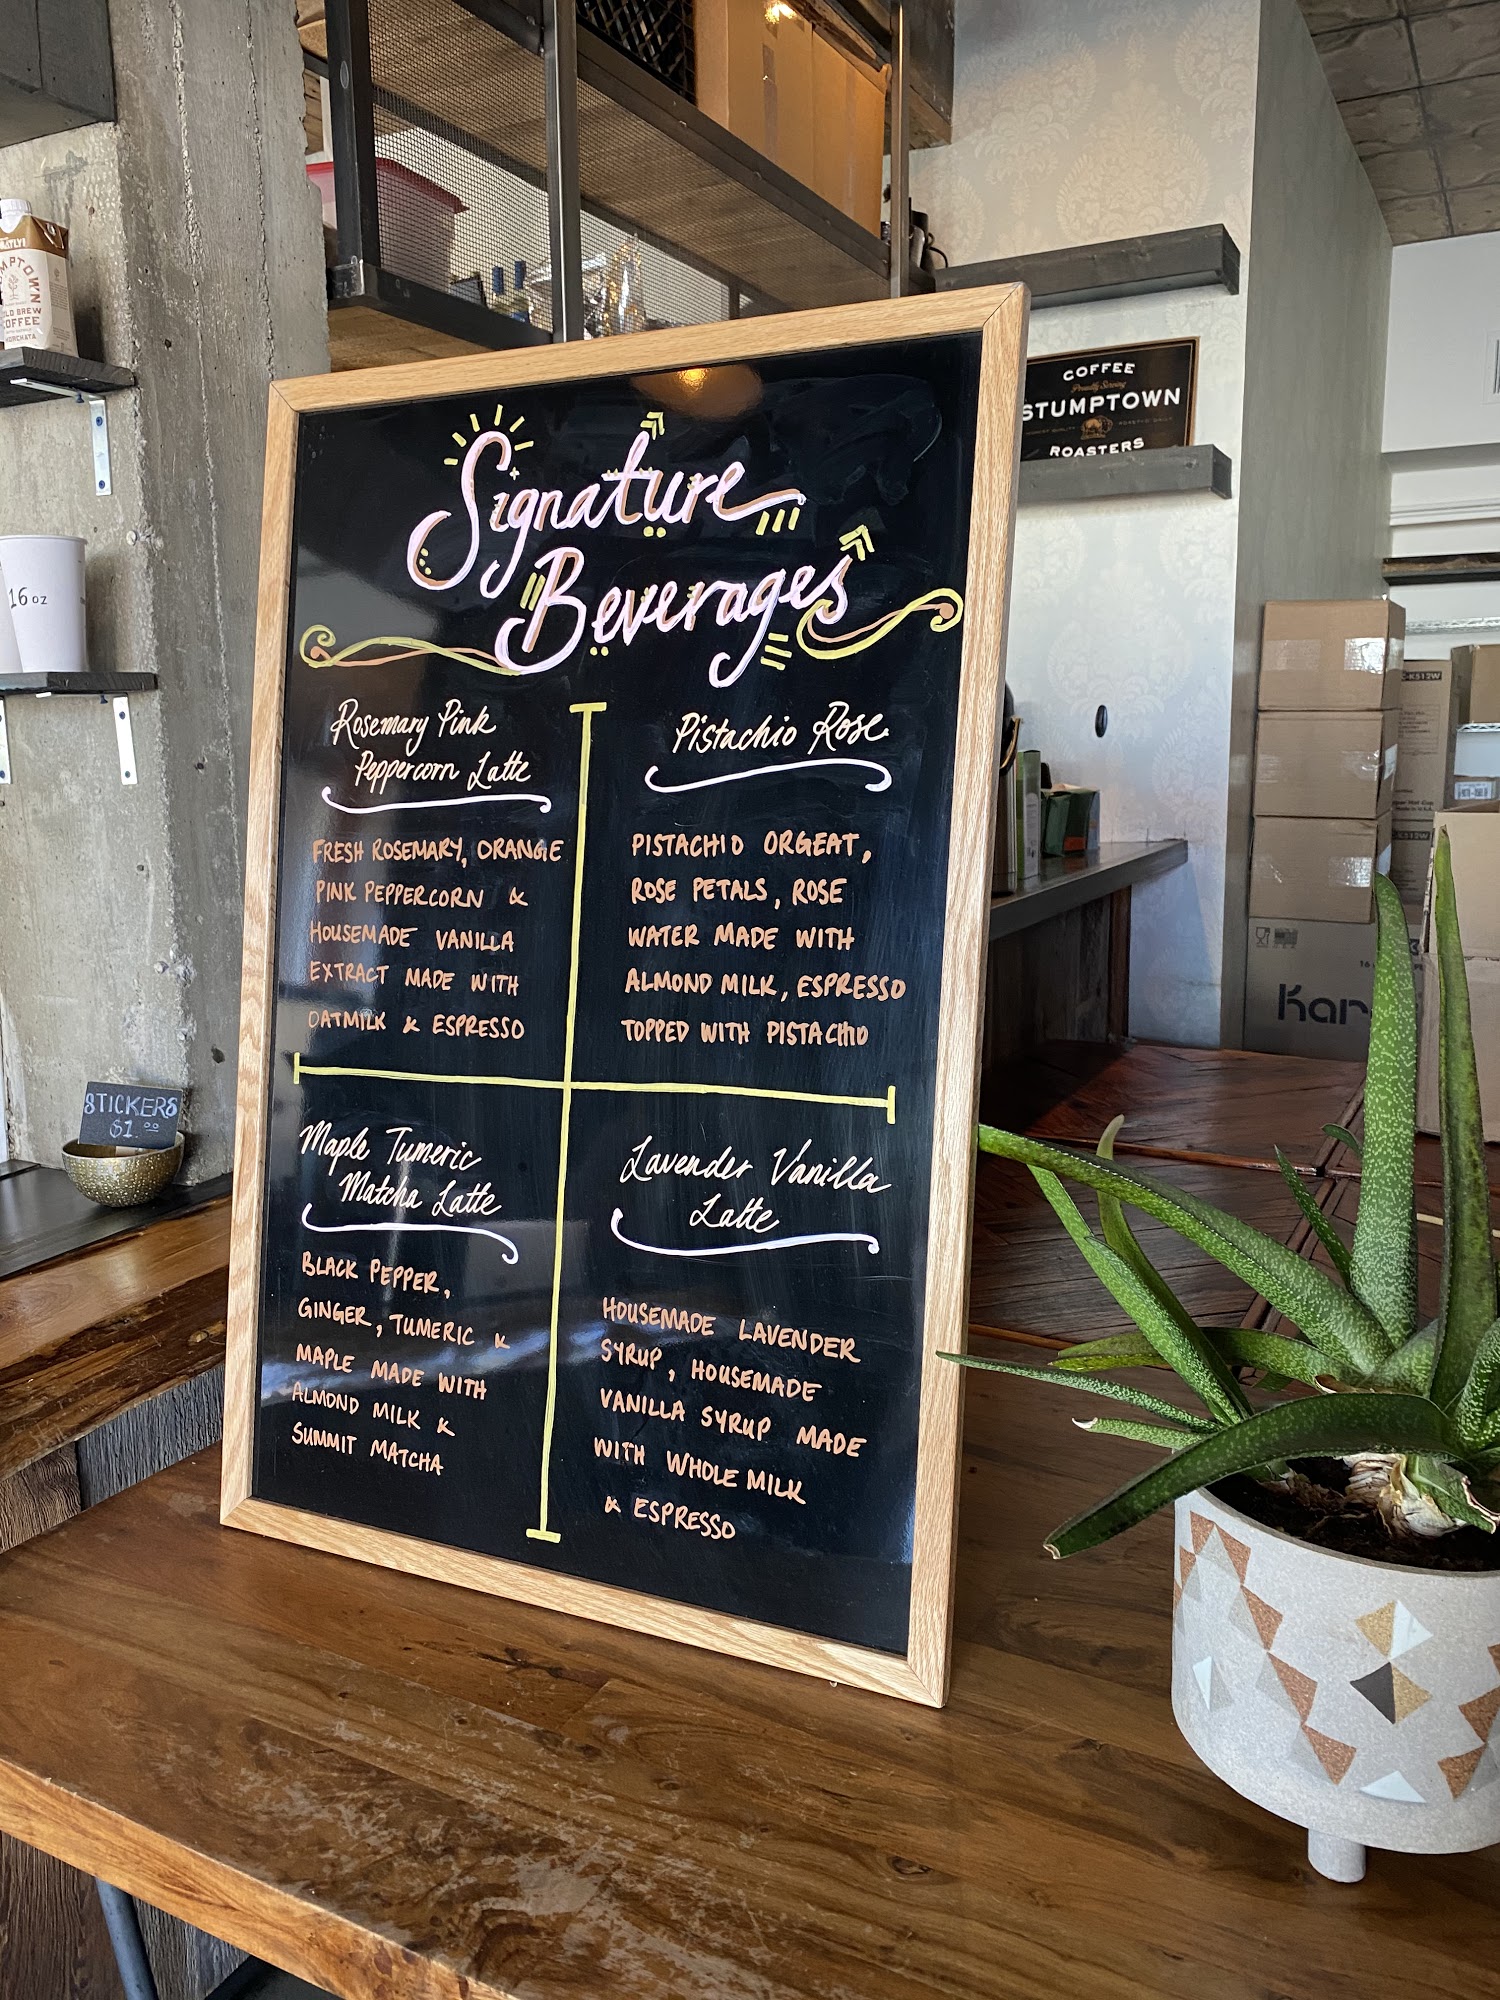 Signature
Beverages
Rosemary Pink
Peppercorn Latte
FRESH ROSEMARY, ORANGE
PINK PEPPERCORN &
HOUSEMADE VANILLA
EXTRACT MADE WITH
OATMILK & ESPRESSO
Pistachio Rose
PISTACHIO ORGEAT,
ROSE PETALS, ROSE
WATER MADE WITH
ALMOND MILK, ESPRESSO
TOPPED WITH PISTACHIO
Maple Tumeric
Matcha Latte
BLACK PEPPER,
GINGER, TUMERIC &
MAPLE MADE WITH
ALMOND MILK &
SUMMIT MATCHA
Lavender Vanilla
Latte
HOUSEMADE LAVENDER
SYRUP, HOUSEMADE
VANILLA SYRUP MADE
WITH WHOLE MILK
& ESPRESSO
COFFEE
Proudly Serving
STUMPTOWN
ROASTERS
16 oz
STICKERS
$1.00
COFFEE
HORCHATA
C-K512W
Kar